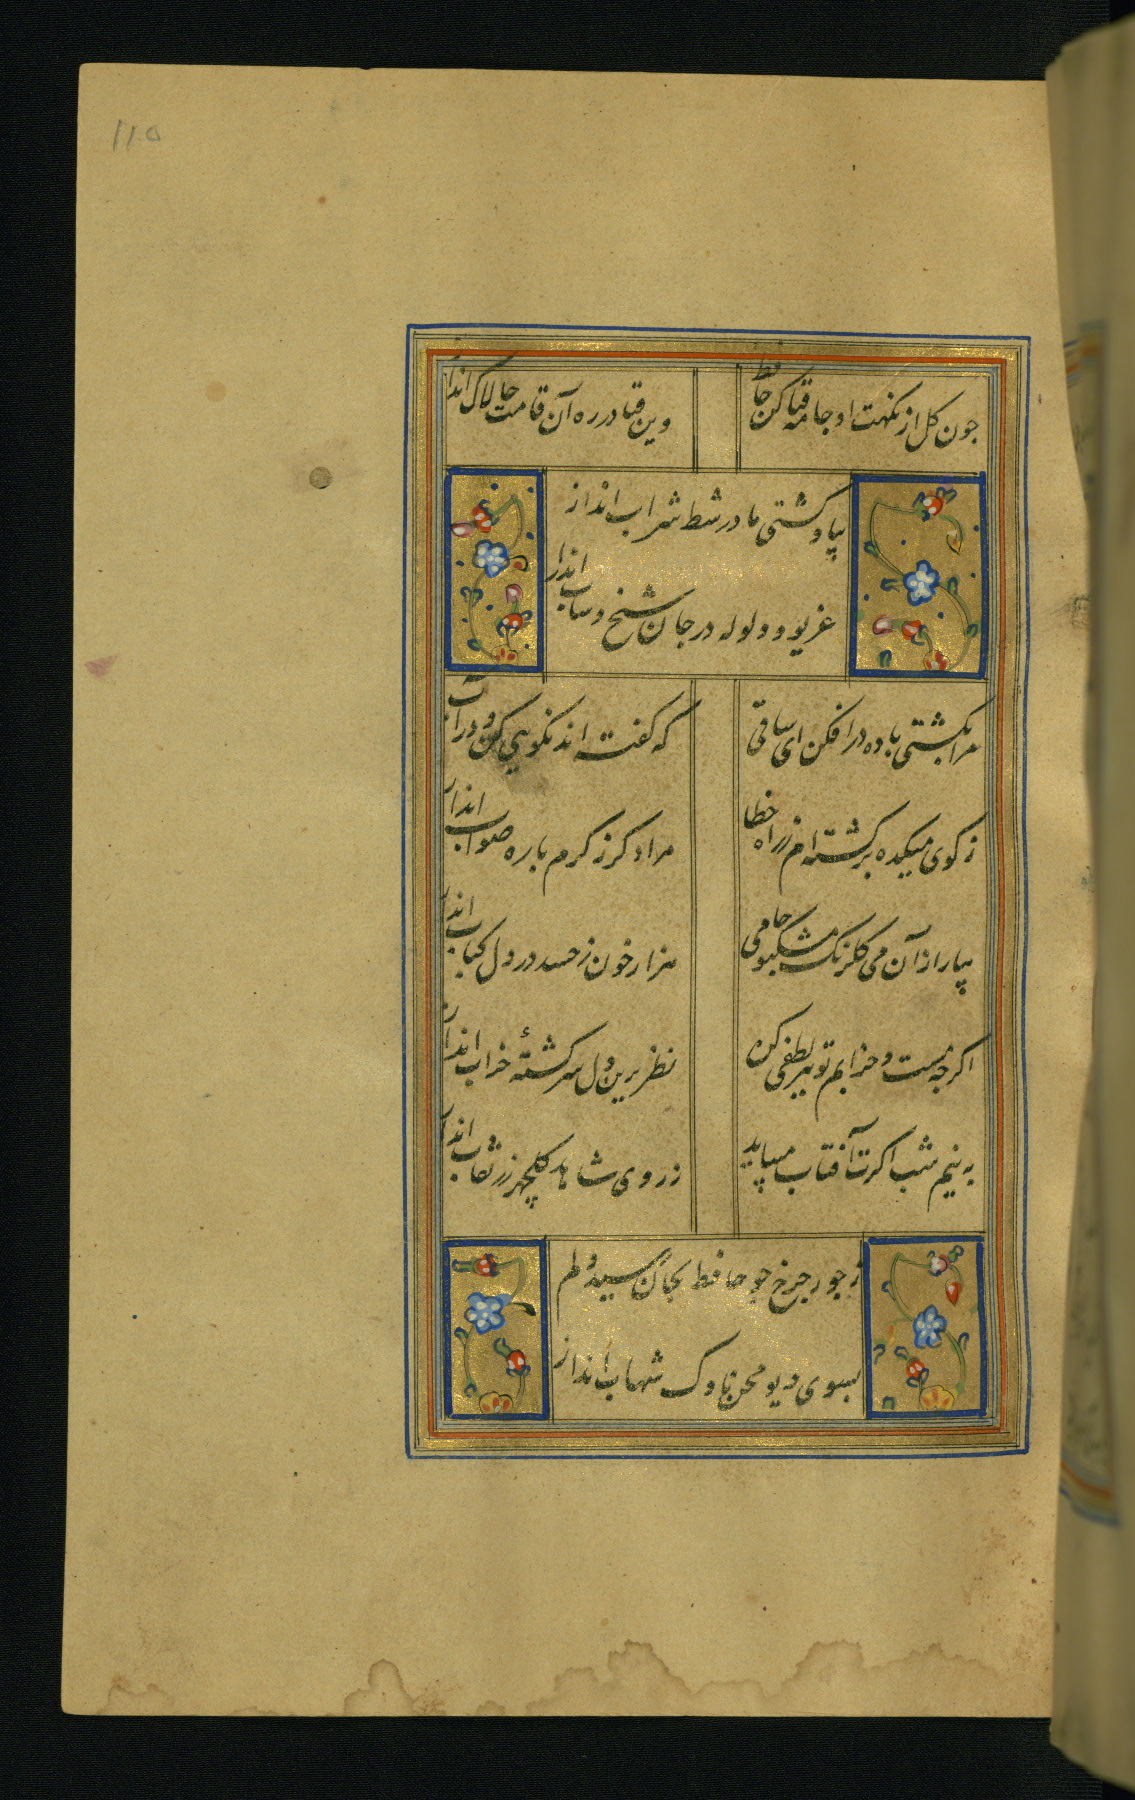 ۱۱۵
چون کل از نکهت او جامه قبا کن حافظ
وین قبا در ره آن قامت چالاک انداز
بیا و کشتی ما در شط شراب انداز
غریو و ولوله در جان شیخ و شاب انداز
مرا بکشتی باده در افکن ای ساقی
که کفته اند نکویی کن و در آب انداز
ز کوی میکده برکشته ام ز راه خطا
مرا دکر ز کرم باره صواب انداز
بیار از آن می کلرنک مشکبو جامی
هزار خون ز حسد در دل کباب انداز
اکرچه مست و خرابم تو نیز لطفی کن
نظر برین دل سرکشتهٔ خراب انداز
به نیم شب اکرت آفتاب میباید
ز روی شاهد کلچهر زر نقاب انداز
ز جور چرخ چو حافظ بجان رسید دلم
بسوی دیو محن ناوک شهاب انداز